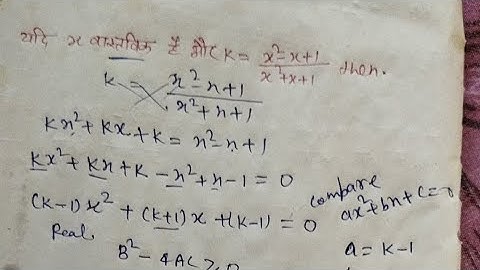 यदि x वास्तविक है और K = x²-x+1 / x²+x+1 then.
k = x²-x+1 / x²+x+1
Kx²+kx+k = x²-x+1
kx²+kx+k-x²+x-1=0
(k-1)x²+(k+1)x+(k-1)=0
compare
ax²+bx+c=0
Real,
B²-4AC≥0
a=k-1